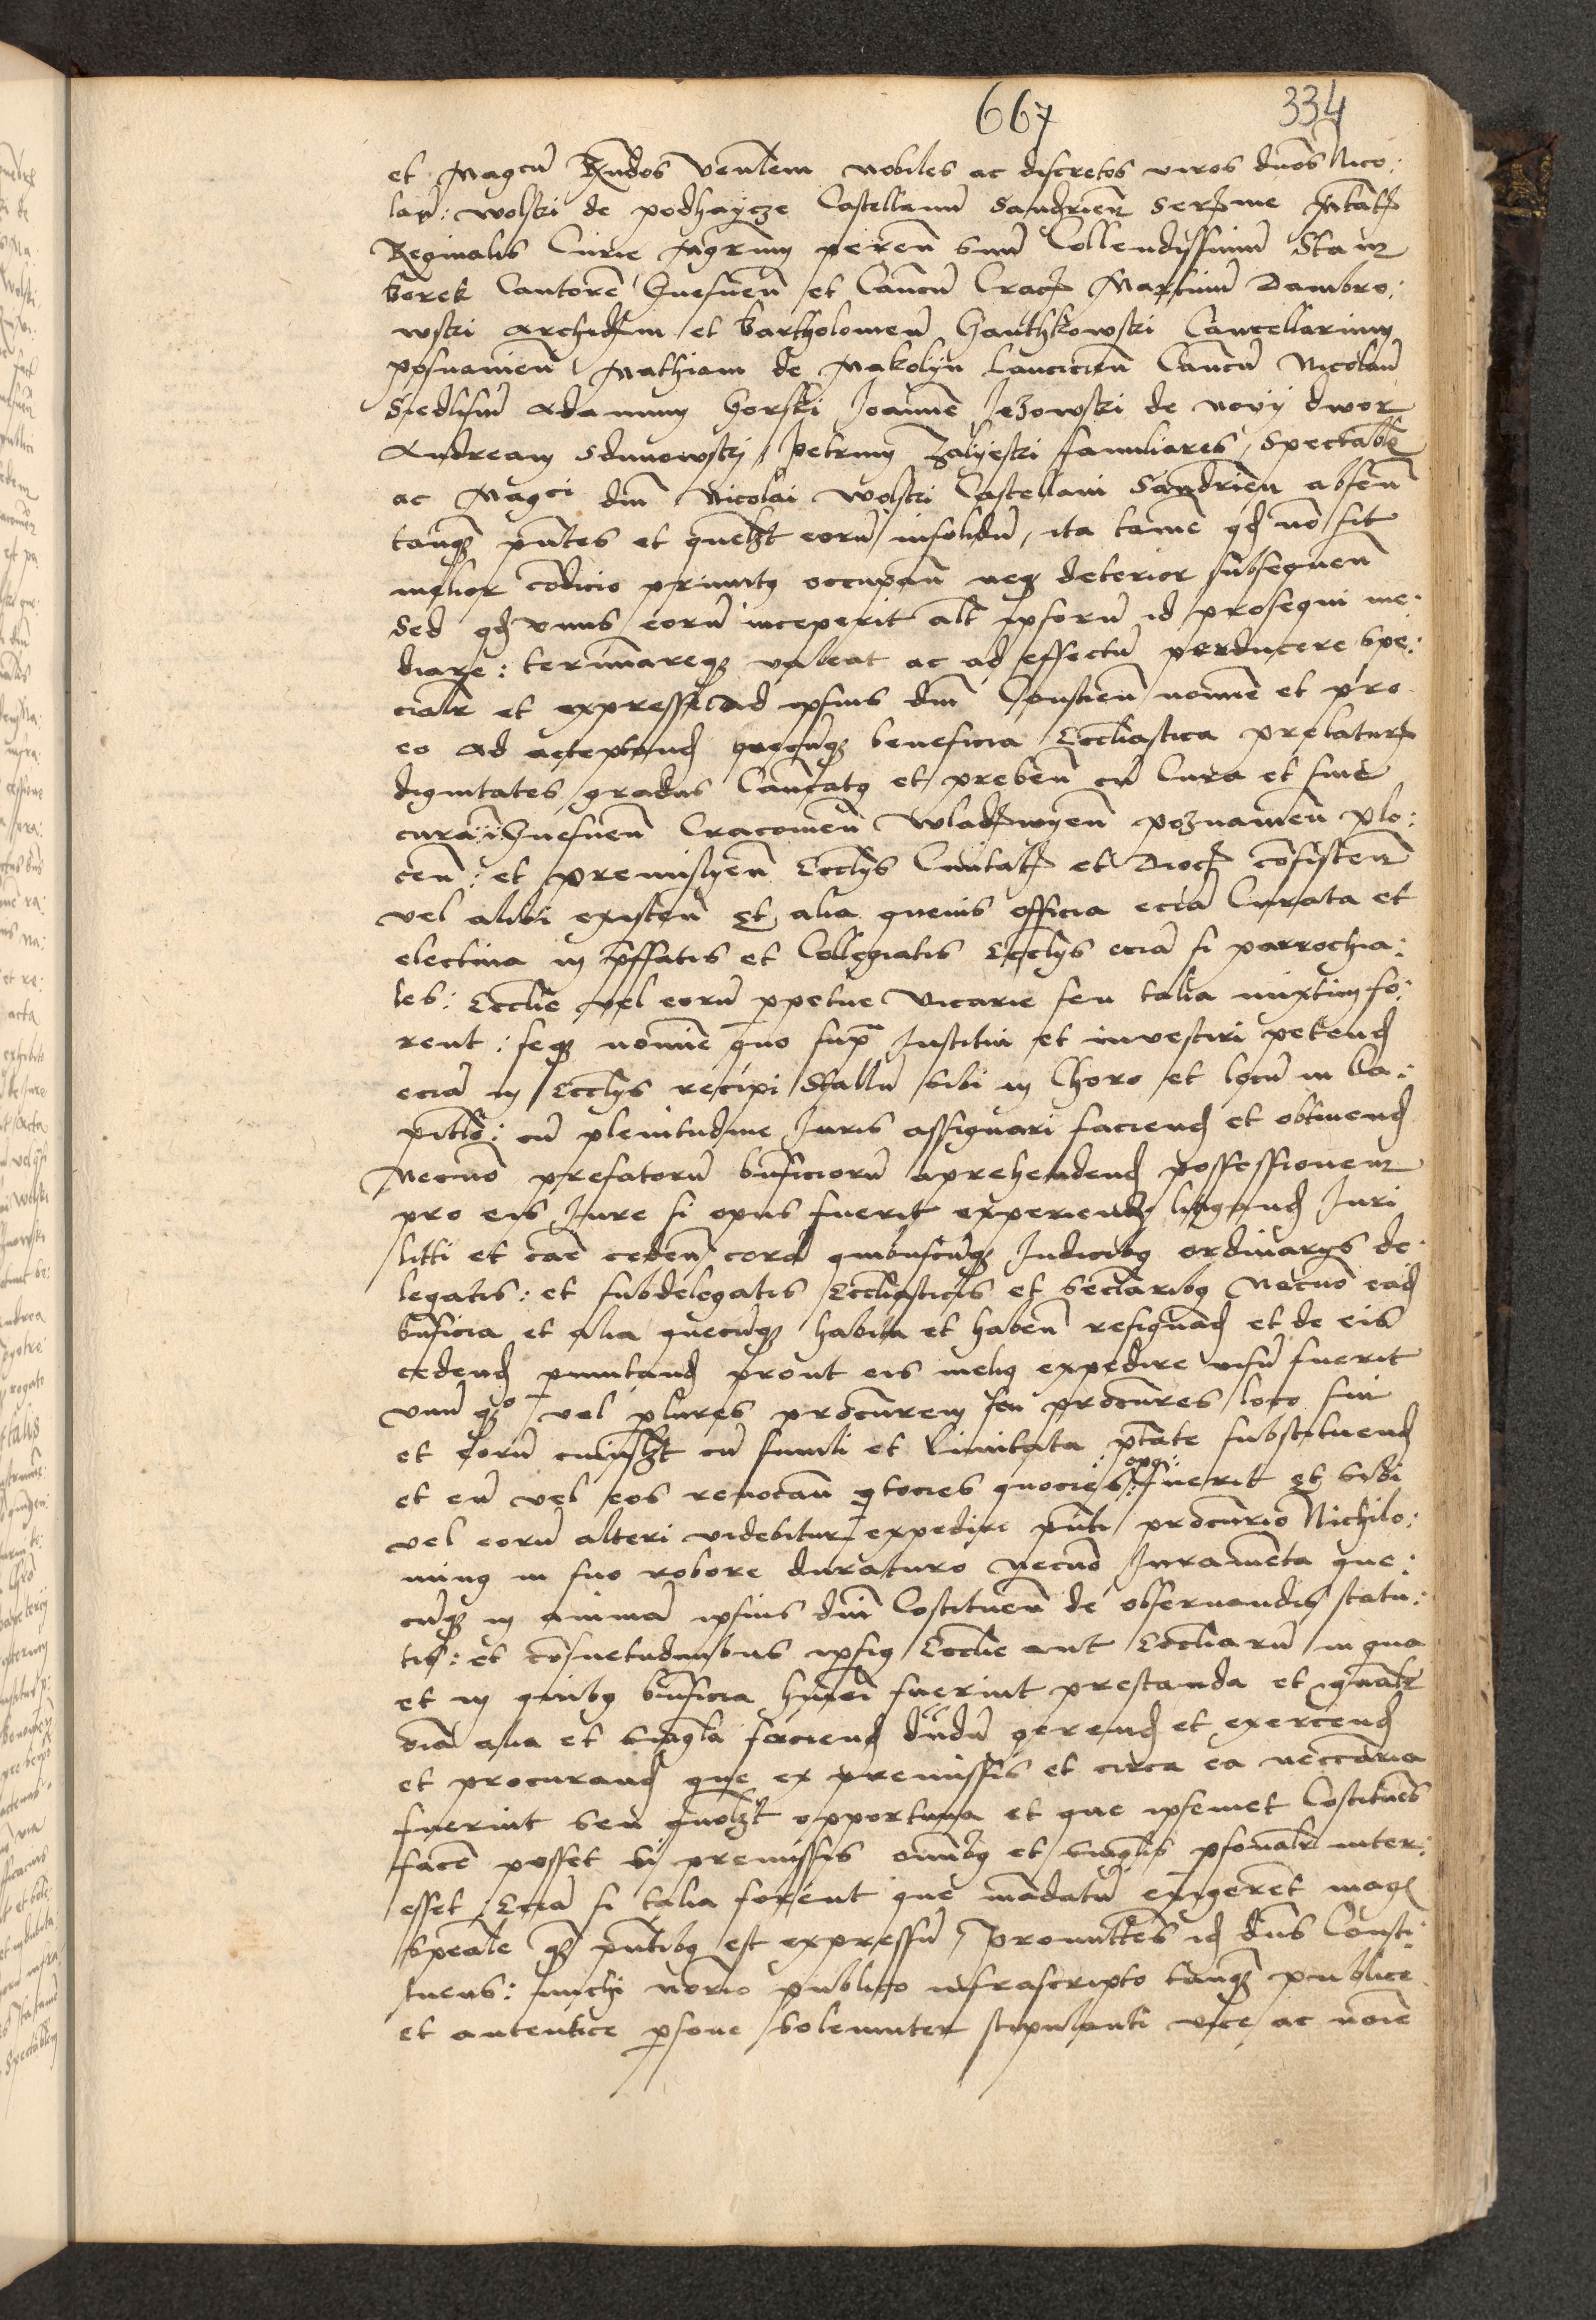 667 334
et Magcu Rndos venlem nobiles ac discretos viros dnos Nico:
lau: wolski de podhaycze Castellanu Sandrien Sersme Mtatis
Reginalis Curie Mgrum peren suu Collendissimu Stan
borek Cantore Gnesnen et Cancu Crac Martinu Dambro:
wski Archidm et bartholomeu Ganthkowski Cancellarium
posnanien Mathiam de Makolyn Lancicien Cancu Nicolau
Siedlisky Adamum Gorski Joanne Jezowski de novy dwor
Andream Sdunowsky Petrum Zalyeski familiares spectabis
ac Magci dni Nicolai wolski Castellani Sandrien absen
tanq pntes et quelzt eoru insolidu, ita tame qd no sit
melior codicio primitq occupan neq deterior subsequen
Sed qd vnus eoru inceperit alt ipsoru id prosequi me:
diare: terminareq valeat ac ad effectu perducere spe:
cialr et expresse ad ipsius dni Constien nomine et pro
eo ad acceptand quecuq beneficia Ecclesiastica prelatur
dignitates gradus Cancatq et preben cu Cura et sine
cura in Gnesnen Cracovien Wladwyen poznanien plo:
cen: et premislyen Ecclys Civitat et Dioc consisten
vel alibi existen Et alia quevis officia ecia Curata et
electiva in pffatis et Collegiatis Ecclys ecia si parrochia:
les: Ecclie vel eoru ppetue vicarie seu talia mixtim fo:
rent: seq nomine quo supra Institui et investiri petend
ecia in Ecclys recipi Stallu sibi in Choro et locu in Ca:
pitlo: cu plenitudine Juris assignari faciend et obtinend
Necno prefatoru bnficioru aprehendend possessionem
pro eis Jure si opus fuerit experiend litigand Juri
litti et cae ceden cora quibuscuq Judicibq ordinarys de
legatis: et subdelegatis Ecclasticis et seclaribq Necno ead
bnficia et alia quecuq habita et haben resignad et de eis
cedend pmutand prout eis melius expedire visu fuerit
vnu qo vel plures procurem seu procures loco sui
et eoru cuiuslzt cu simili et limitata ptate substituend
et eu vel eos revocan totiens quocies: opq: fuerit Et sibi
vel eoru alteri videbitur expedire pnti procurio Nichilo:
minq in suo robore duraturo necno Juramenta que:
cuq in anima ipsius dni Costituen de observandis statu:
tis: et cosuetudinibus ipsiq Ecclie aut Eccliaru in qua
et in quibq bnficia hmoi fuerint prestanda et gnalr
oia alia et singla faciend dndu gerend et exercend
et procurand que ex premissis et circa ea neccaria
fuerint seu quolzt opportuna et que ipsemet Costitues
face posset si premissis omibq et singlis psonalr inter:
esset Ecia si talia forent que madatu exigeret magis
speale q pntibq est expressu, Promittes id dns Consti:
tuens: michi norio publico infrascripto tanq publice
et autentice psone solenniter stipulanti vice ac noie